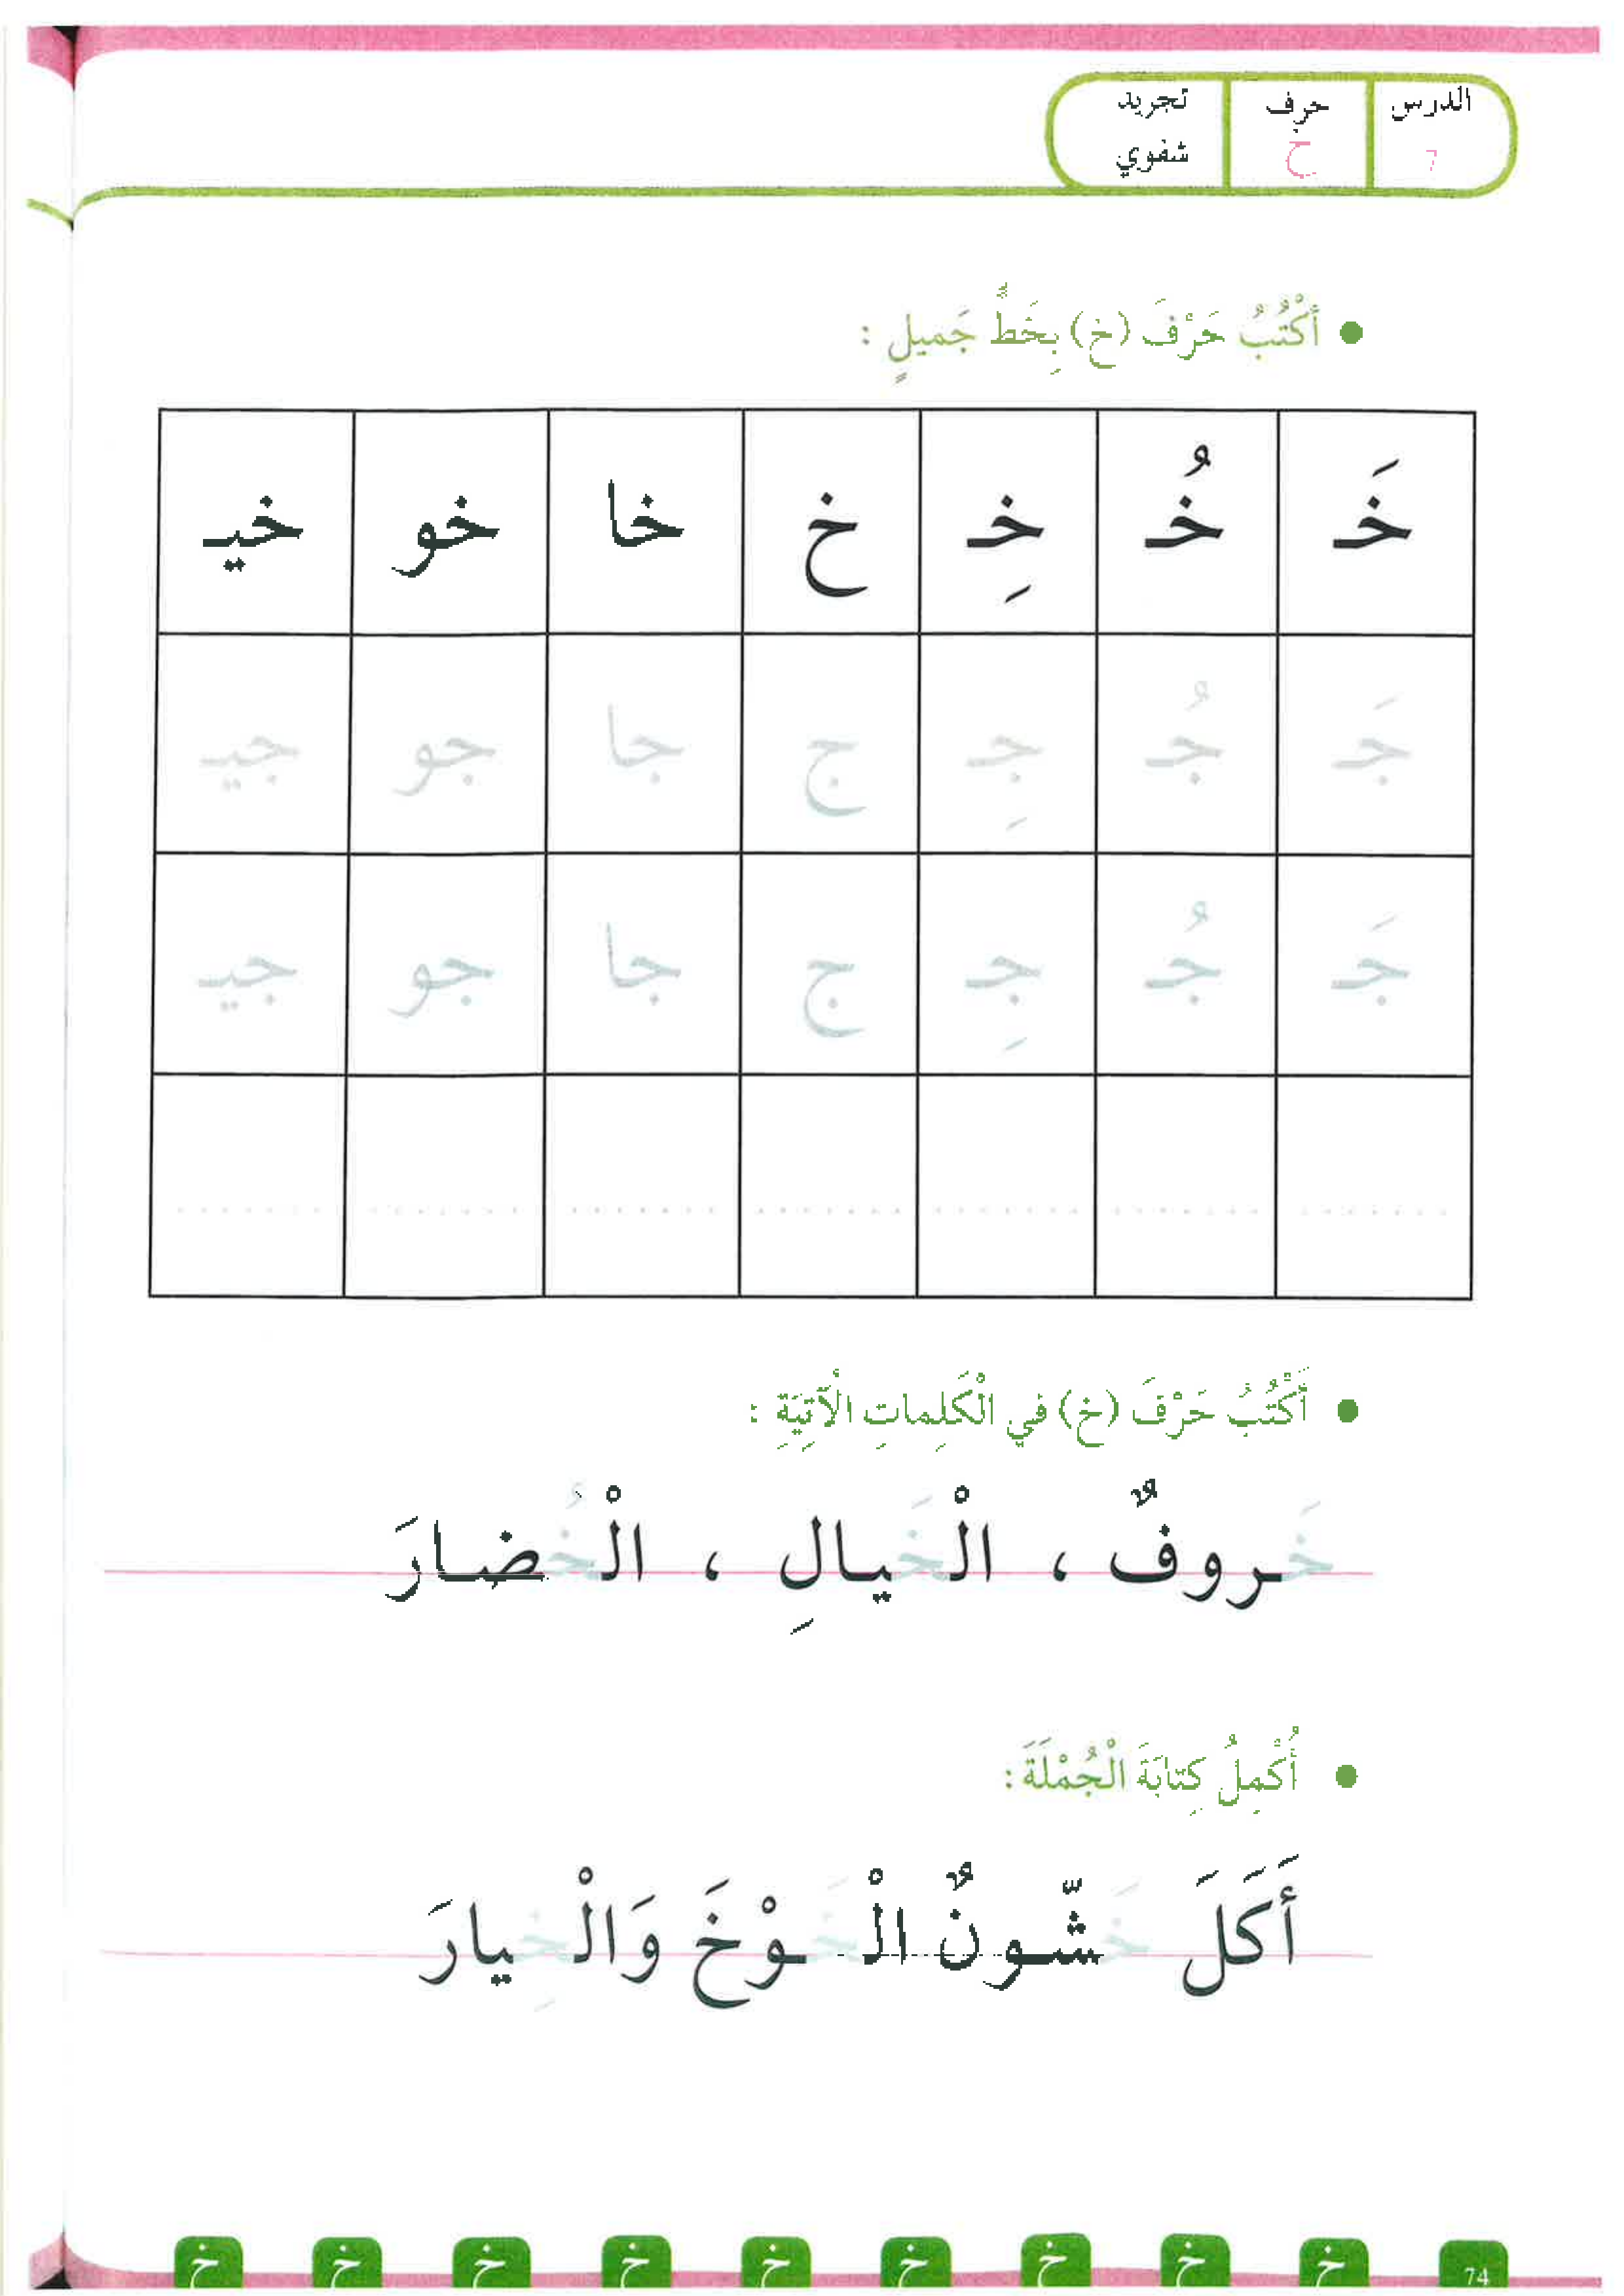 الدرس حرف تجريد
7 ح شفوي
• أَكْتُبُ حَرْفَ (خ) بِخَطٍّ جَميلٍ :
خَـ خُـ خِـ خ خا خو خيـ
جَـ جُـ جِـ ج جا جو جيـ
جَـ جُـ جِـ ج جا جو جيـ
• أَكْتُبُ حَرْفَ (خ) في الْكَلِماتِ الْآتِيَةِ :
خَـروفٌ ، الْخَيالِ ، الْخُضارَ
• أُكْمِلُ كِتابَةَ الْجُمْلَةَ :
أَكَلَ خَـشّونٌ الْخَـوْخَ وَالْخِيارَ
74 خ خ خ خ خ خ خ خ خ